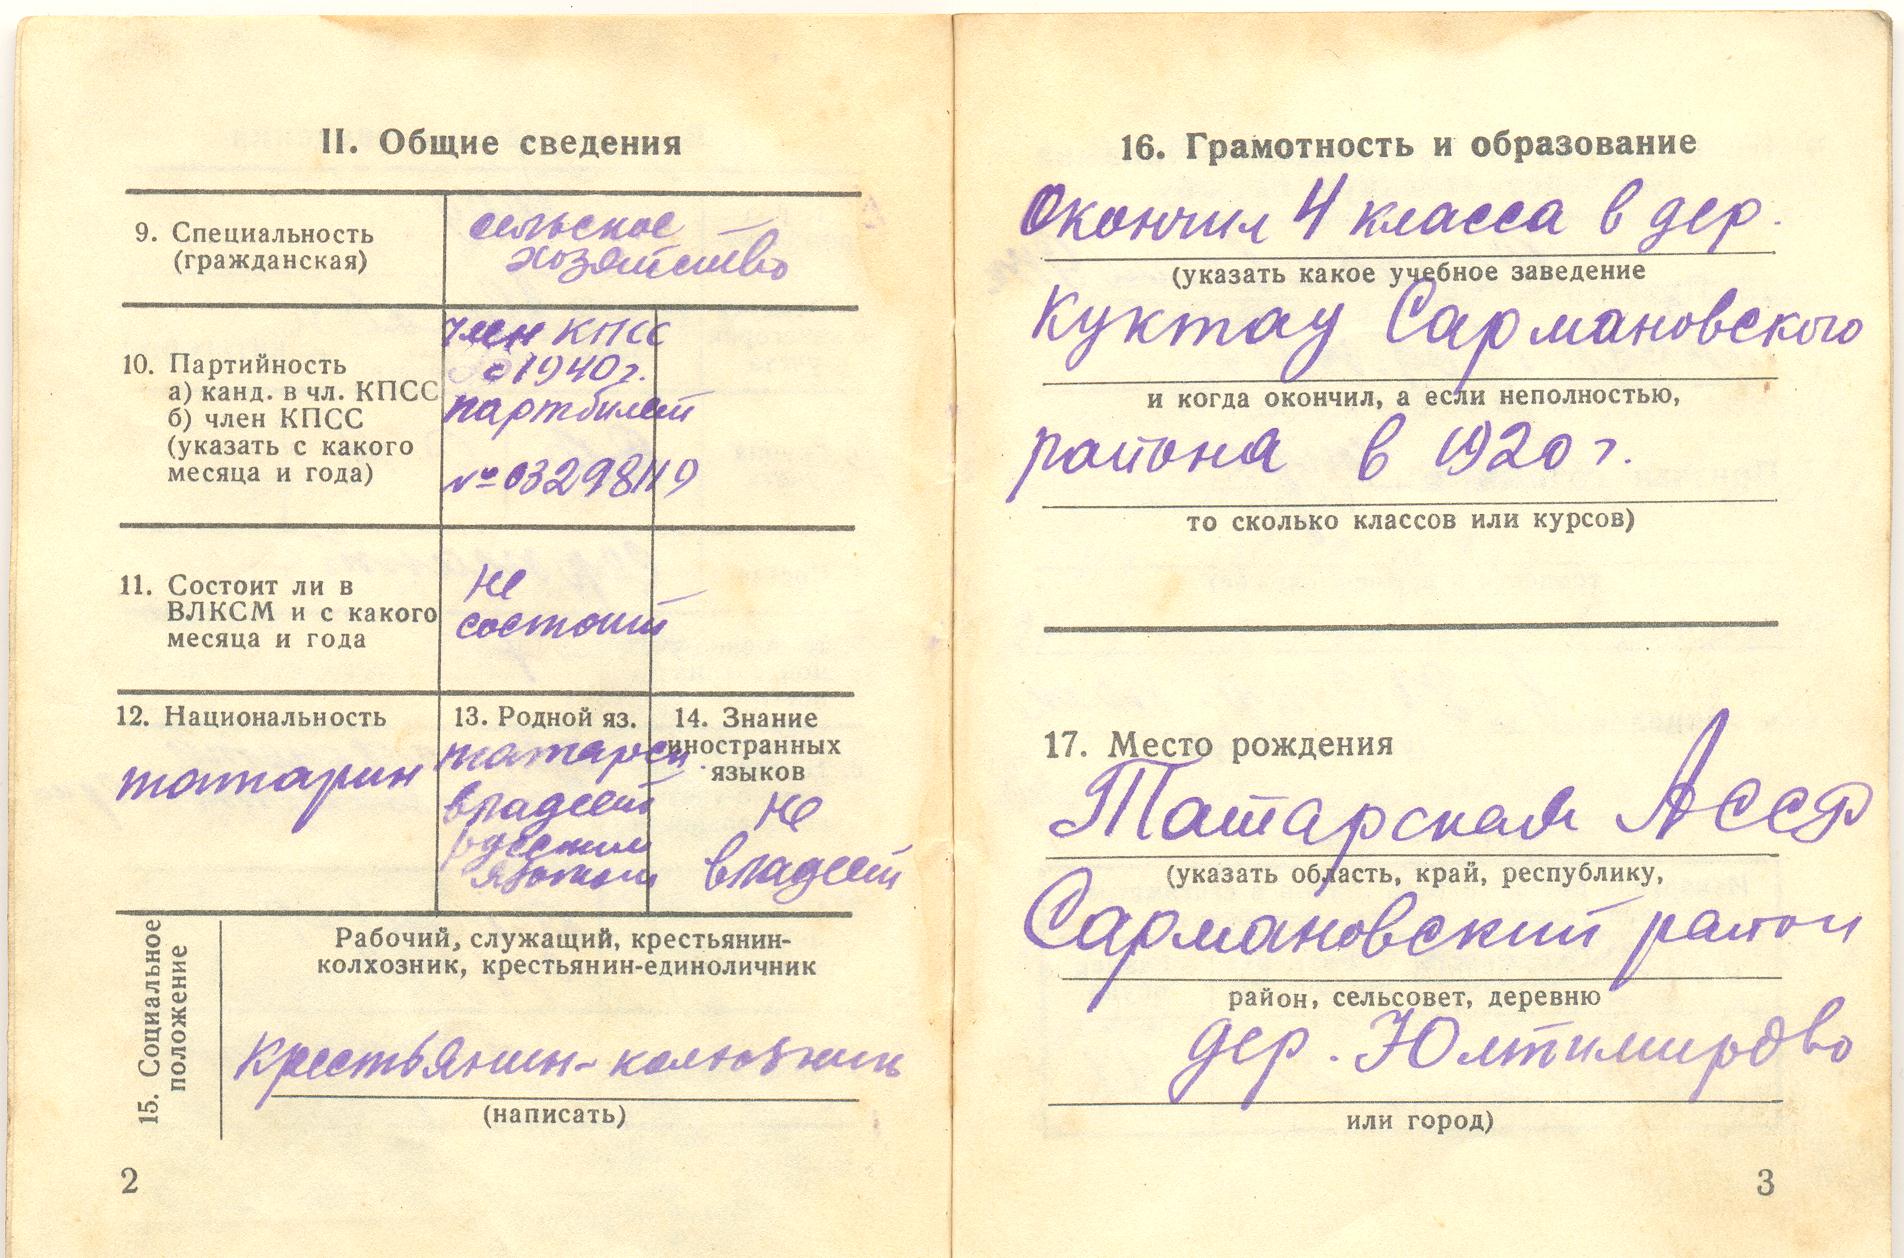 II. Общие сведения
9. Специальность
(гражданская)
сельское
хозяйство
10. Партийность
а) канд. в чл. КПСС
б) член КПСС
(указать с какого
месяца и года)
член КПСС
с 1940 г.
партбилет
№ 03298119
11. Состоит ли в
ВЛКСМ и с какого
месяца и года
не
состоит
12. Национальность
татарин
13. Родной яз.
татарск
владеет
русским
языком
14. Знание
иностранных
языков
не
владеет
15. Социальное
положение
Рабочий, служащий, крестьянин-
колхозник, крестьянин-единоличник
крестьянин-колхозник
(написать)
2
16. Грамотность и образование
Окончил 4 класса в дер.
(указать какое учебное заведение
Куктау Сармановского
и когда окончил, а если неполностью,
района в 1920 г.
то сколько классов или курсов)
17. Место рождения
Татарская АССР
(указать область, край, республику,
Сармановский район
район, сельсовет, деревню
дер. Юлтимирово
или город)
3